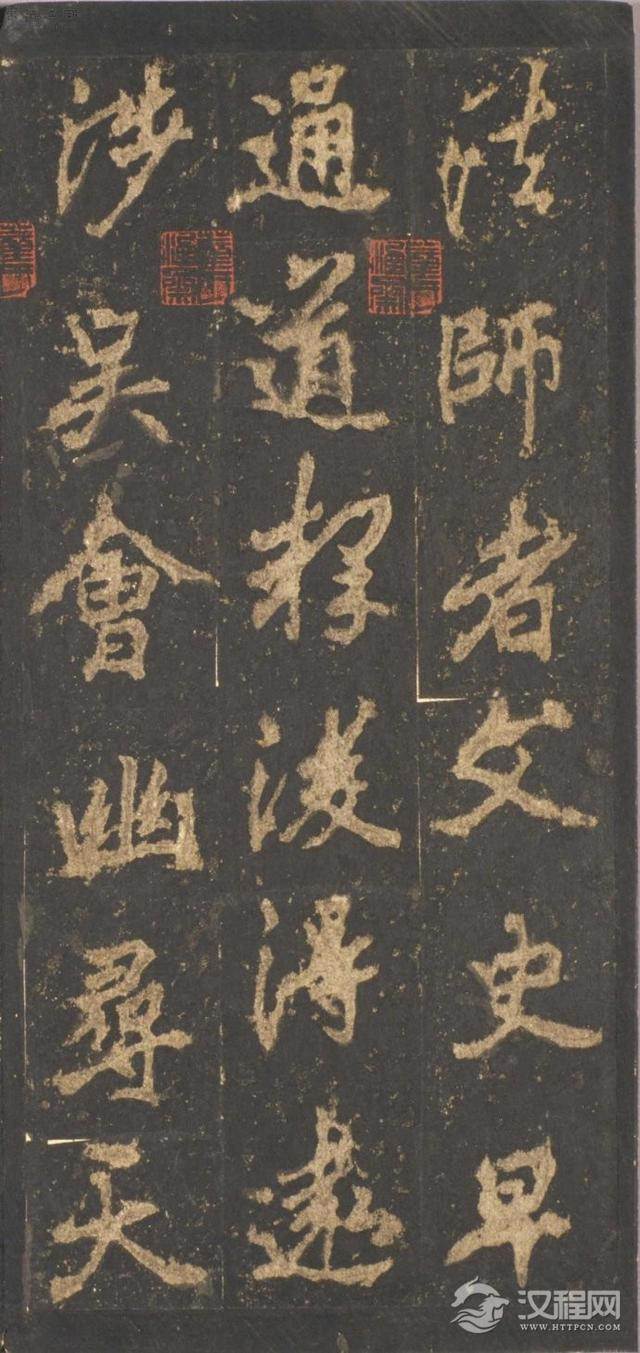 法師者文史早
通道釋後得遠
涉吳會幽尋天
汉程网
WWW.HTTPCN.COM